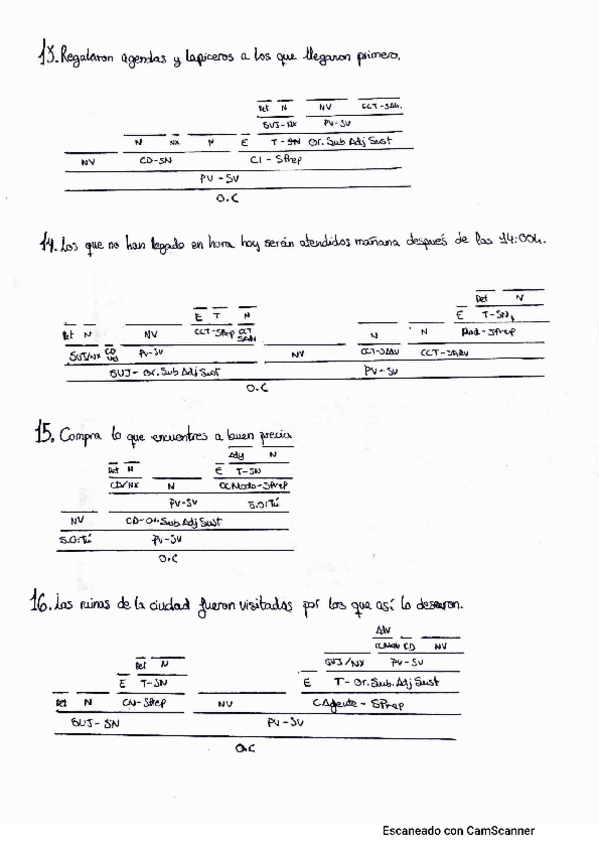 13. Regalaron agendas y lapiceros a los que llegaron primero.
Det N NV CCT-SAdv.
SUJ-NX PV-SV
N NX N E T-SN Or. Sub Adj Sust
NV CD-SN CI-SPrep
PV-SV
O.C
14. Los que no han llegado en hora hoy serán atendidos mañana después de las 14:00h.
Det N
E T N E T-SN
Det N NV CCT-SPrep CCT SAdv N N Mod-SPrep
SUJ/NX PV-SV NV CCT-SAdv CCT-SAdv
SUJ-Or. Sub Adj Sust PV-SV
O.C
15. Compra lo que encuentres a buen precio
Adj N
Det N E T-SN
CD/NX N CCModo-SPrep
PV-SV S.O:Tú
NV CD-Or. Sub Adj Sust
S.O:Tú PV-SV
O.C
16. Las ruinas de la ciudad fueron visitadas por los que así lo desearon.
Adv
Det N CCModo CD NV
SUJ/NX PV-SV
E T-SN E T-Or. Sub. Adj Sust
Det N CN-SPrep NV CAgente-SPrep
SUJ-SN PV-SV
O.C
Escaneado con CamScanner